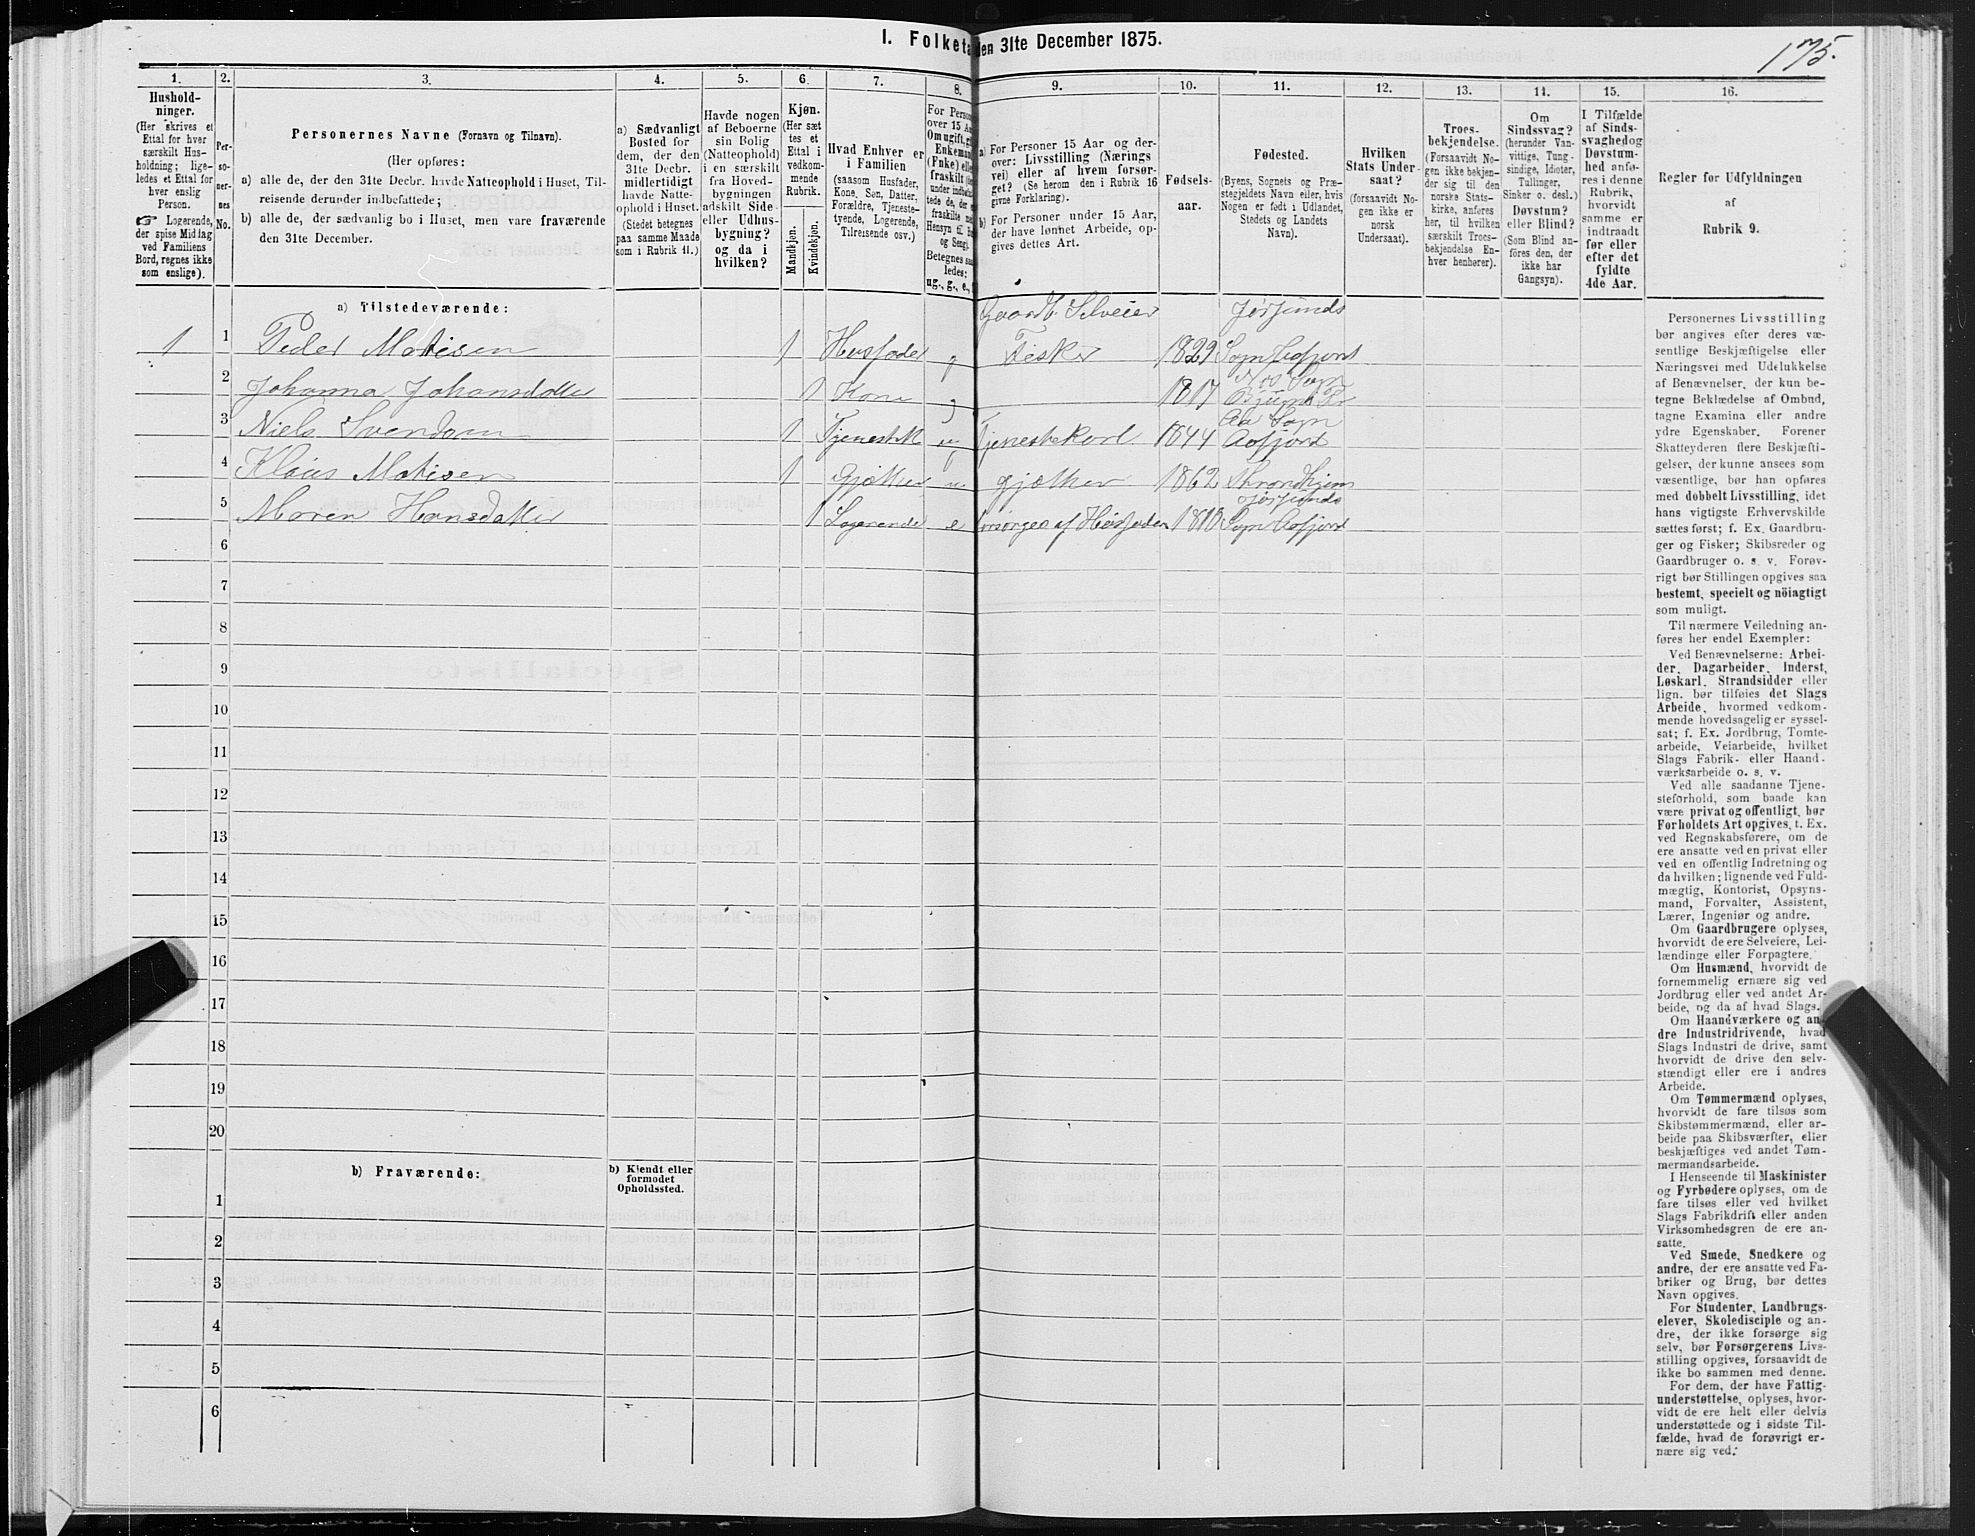 I. Folketa den 31te December 1875.
175.
1. 2. 3. 4. 5. 6. 7. 8. 9. 10. 11. 12. 13. 14. 15. 16.
Hushold-
ninger.
(Her skrives et
Ettal for hver
særskilt Hus-
holdning; lige-
ledes et Ettal for
hver enslig
Person.
☞ Logerende,
der spise Middag
ved Familiens
Bord, regnes ikke
som enslige).
Per-
so-
ner-
nes
No.
Personernes Navne (Fornavn og Tilnavn).
(Her opføres:
a) alle de, der den 31te Decbr. havde Natteophold i Huset, Til-
reisende derunder indbefattede;
b) alle de, der sædvanlig bo i Huset, men vare fraværende
den 31te December.
a) Sædvanligt
Bosted for
dem, der den
31te Decbr.
midlertidigt
havde Natte-
ophold i Huset.
(Stedet betegnes
paa samme Maade
som i Rubrik 11.)
Havde nogen
af Beboerne
sin Bolig
(Natteophold)
i en særskilt
fra Hoved-
bygningen
adskilt Side-
eller Udhus-
bygning?
og da i
hvilken?
Kjøn.
(Her sæt
tes et
Ettal i
vedkom-
mende
Rubrik.
Mandkjøn.
Kvindekjøn.
Hvad Enhver er
i Familien
(saasom Husfader,
Kone, Søn, Datter,
Forældre, Tjeneste-
tyende, Logerende,
Tilreisende osv.)
For Person
over 15 Aa
Om ugift, gi
Enkeman
(Fnke) elle
fraskilt
Betegnes saa
ledes:
ug., g., e.,
a) For Personer 15 Aar og der-
over: Livsstilling (Nærings
vei) eller af hvem forsør-
get? (Se herom den i Rubrik 16
givne Forklaring).
b) For Personer under 15 Aar,
der have lønnet Arbeide, op-
gives dettes Art.
Fødsels-
aar.
Fødested.
(Byens, Sognets og Præ-
stegjeldets Navn eller, hvis
Nogen er født i Udlandet,
Stedets og Landets
Navn).
Hvilken
Stats Under-
saat?
(forsaavidt No-
gen ikke er
norsk
Undersaat).
Troes-
bekjendelse.
(Forsaavidt No-
gen ikke bekjen-
der sig til den
norske Stats-
kirke, anføres
her, til hvilken
særskilt Troes-
bekjendelse En-
hver henhører).
Om
Sindssvag?
(herunder Van-
vittige, Tung-
sindige, Idioter,
Tullinger,
Sinker o. desl.)
Døvstum?
eller Blind?
(Som Blind an-
føres den, der
ikke har
Gangsyn).
I Tilfælde
af Sinds-
svaghed og
Døvstum-
hed anfø-
res i denne
Rubrik,
hvorvidt
samme er
indtraadt
før eller
efter det
fyldte
4de Aar.
Regler for Udfyldningen
af
Rubrik 9.
a) Tilstedeværende:
Gaardb. Selveier Jøssunds
1 1 Peder Matisen 1 Husfader g Fisker 1829 Sogn Aafjord
Næs Sogn
2 Johanna Johansdatter 1 Kone g 1817 Bjugn Pr
Aa Sogn
3 Niels Svendsen 1 Tjenestk u Tjenestekarl 1844 Aafjord
4 Klaus Matisen 1 Gjætter u gjætter 1862 Throndhjem
Jøssunds
5 Maren Hansdatter 1 Logerende e Forsørges af Husfaderen 1810 Sogn Aafjord
6
7
8
9
10
11
12
13
14
15
16
17
18
19
20
b) Fraværende: b) Kjendt eller
formodet
Opholdssted.
1
2
3
4
5
6
Personernes Livsstilling
bør angives efter deres væ-
sentlige Beskjæftigelse eller
Næringsvei med Udelukkelse
af Benævnelser, der kun be-
tegne Beklædelse af Ombud,
tagne Examina eller andre
ydre Egenskaber. Forener
Skatteyderen flere Beskjæfti-
gelser, der kunne ansees som
væsentlige, bør han opføres
med dobbelt Livsstilling, idet
hans vigtigste Erhvervskilde
sættes først; f. Ex. Gaardbru-
ger og Fisker; Skibsreder og
Gaardbruger o. s. v. Forøv-
rigt bør Stillingen opgives saa
bestemt, specielt og nöiagtigt
som muligt.
Til nærmere Veiledning an-
føres her endel Exempler:
Ved Benævnelserne: Arbei-
der, Dagarbeider, Inderst,
Løskarl, Strandsidder eller
lign. bør tilføies det Slags
Arbeide, hvormed vedkom-
mende hovedsagelig er syssel-
sat; f. Ex. Jordbrug, Tomte-
arbeide, Veiarbeide, hvilket
Slags Fabrik- eller Haand-
værksarbeide o. s. v.
Ved alle saadanne Tjene-
steforhold, som baade kan
være privat og offentligt, bør
Forholdets Art opgives, t. Ex.
ved Regnskabsførere, om de
ere ansatte ved en privat eller
ved en offentlig Indretning og
da hvilken; lignende ved Fuld-
mægtig, Kontorist, Opsyns-
mand, Forvalter, Assistent,
Lærer, Ingeniør og andre.
Om Gaardbrugere oplyses,
hvorvidt de ere Selveiere, Lei-
lændinge eller Forpagtere.
Om Husmænd, hvorvidt de
fornemmelig ernære sig ved
Jordbrug eller ved andet Ar-
beide, og da af hvad Slags.
Om Haandværkere og an-
dre Industridrivende, hvad
Slags Industri de drive, samt
hvorvidt de drive den selv-
stændigt eller ere i andres
Arbeide.
Om Tømmermænd oplyses,
hvorvidt de fare tilsøs som
Skibstømmermænd, eller ar-
beide paa Skibsværfter, eller
beskjæftiges ved andet Tøm-
mermandsarbeide.
I Henseende til Maskinister
og Fyrbødere oplyses, om de
fare tilsøs eller ved hvilket
Slags Fabrikdrift eller anden
Virksomhedsgren de ere an-
satte.
Ved Smede, Snedkere og
andre, der ere ansatte ved Fa-
briker og Brug, bør dettes
Navn opgives.
For Studenter, Landbrugs-
elever, Skoledisciple og an-
dre, der ikke forsørge sig
selv, bør Forsørgerens Livs-
stilling opgives, forsaavidt de
ikke bo sammen med denne.
For dem, der have Fattig-
understøttelse, oplyses, hvor-
vidt de ere helt eller delvis
understøttede og i sidste Til-
fælde, hvad de forøvrigt er-
nære sig ved.